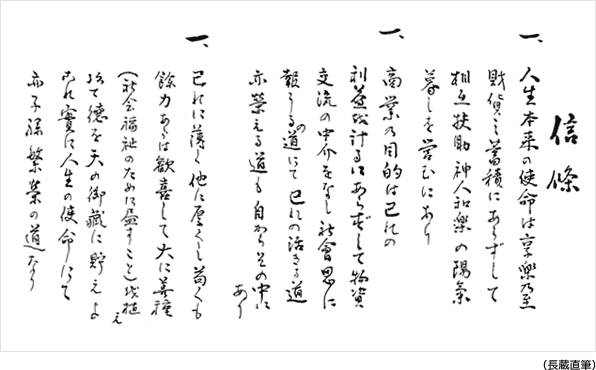 信條
一、人生本来の使命は享楽乃至
財貨之蓄積にあらずして
相互扶助神人和楽の陽氣
暮しを営むにあり
一、商業の目的は己れの
利益を計るにあらずして物資
交流の中介をなし社會恩に
報うるの道にて己れの活きる道
亦榮える道も自からその中に
あり
一、己れに薄く他に厚くし苟くも
餘力あらば歓喜して大に善種
(社会福祉のために尽すこと)を植え
以て徳を天の御蔵に貯えよ
これ實に人生の使命にして
亦子孫繁榮の道なり
(長蔵直筆)